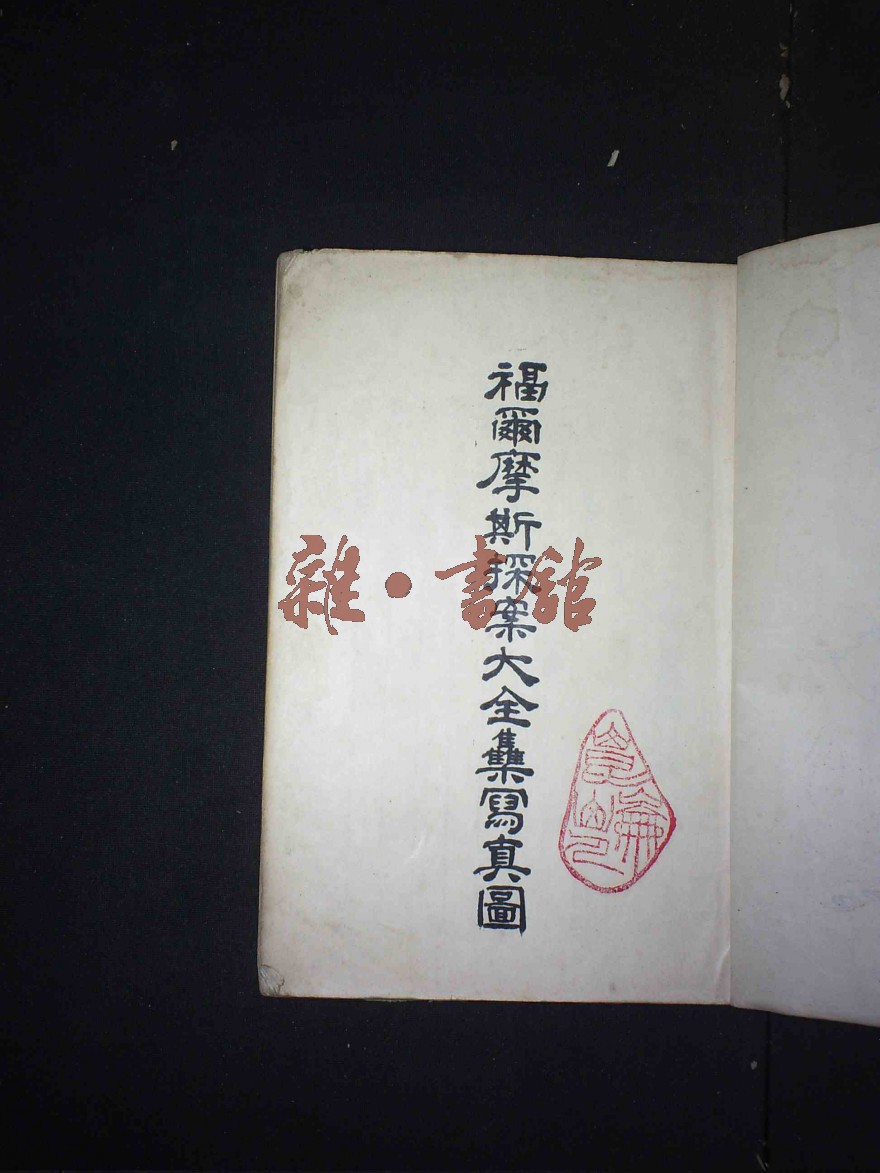 福爾摩斯探案大全集寫真圖
雜·書館